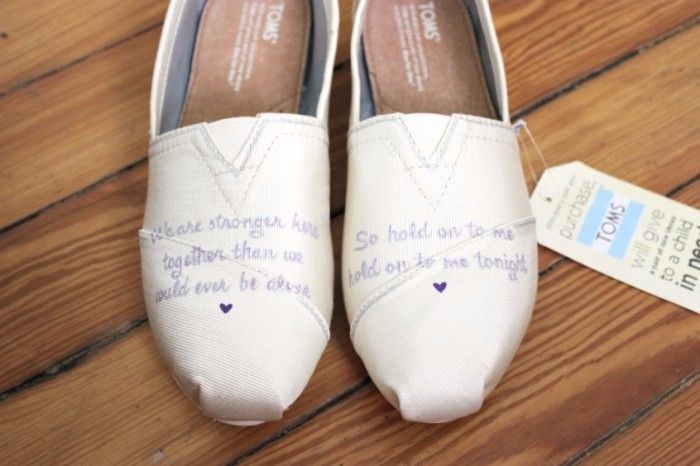 TOMS
TOMS
We are stronger here
together than we
could ever be alone
So hold on to me
hold on to me tonight
purchase,
TOMS
will give
to a child
in need